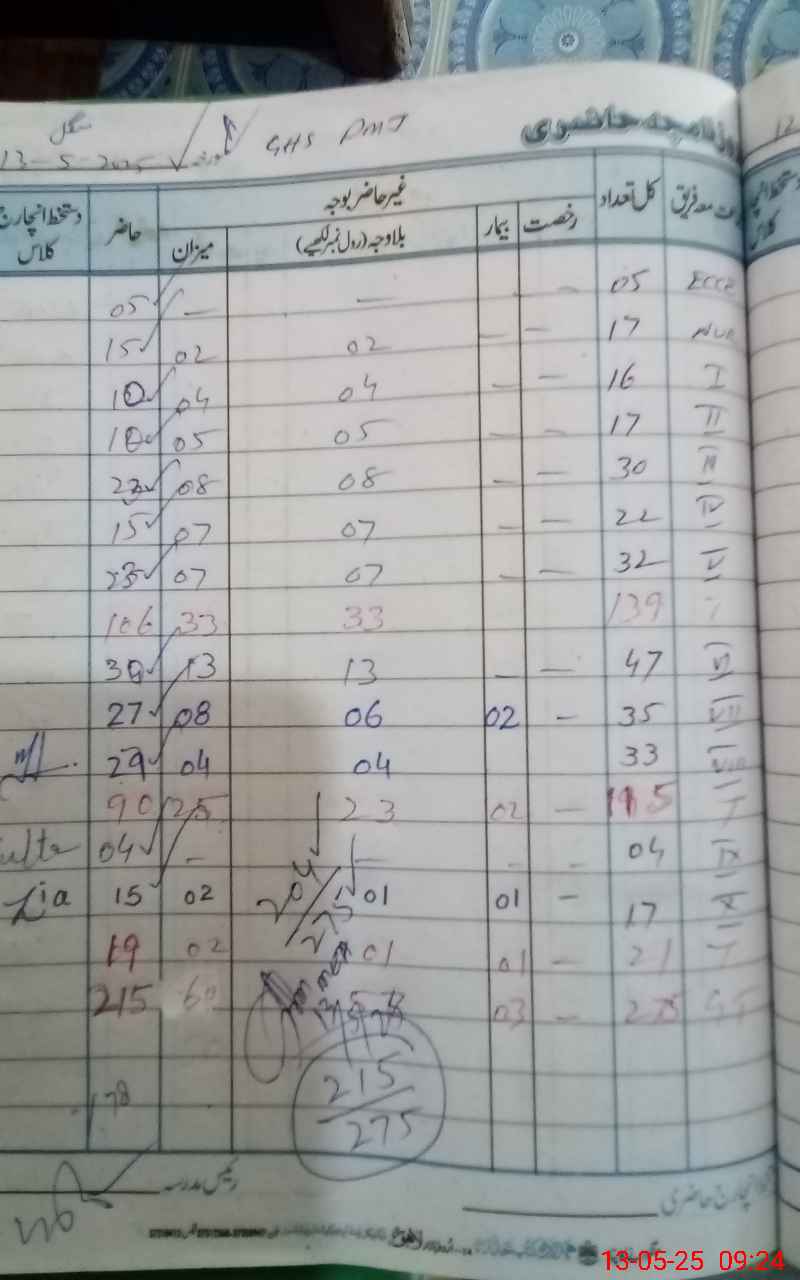 روزنامچہ حاضری GHS DMJ منگل
13-5-2025
کل تعداد رخصت غیر حاضر بوجہ حاضر دستخط انچارج کلاس
بیمار بلاوجہ (رول نمبر لکھیے) میزان
ECCE 05 — — — 05
NUR 17 — — 02 02 15
I 16 — — 04 04 10
II 17 — — 05 05 10
III 30 — — 08 08 23
IV 22 — — 07 07 15
V 32 — — 07 07 25
T 139 33 33 106
VI 47 — — 13 13 30
VII 35 — 02 06 08 27
VIII 33 04 04 29
T 115 — 02 23 25 90
IX 04 — — — — 04
X 17 — 01 01 02 15 Zia
T 21 — 01 01 02 19
GT 275 — 03 60 215
204/275
215/275
178
انچارج حاضری رئیس مدرسہ
13-05-25 09:24